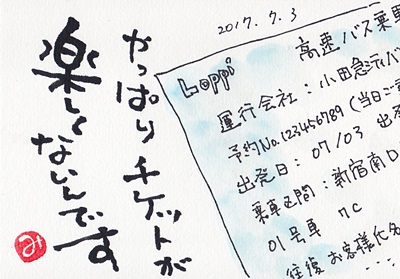 やっぱりチケットが
楽しくないんです
み
2017.7.3
Loppi
高速バス乗
運行会社：小田急シティバ
予約No.123456789 (当日ご
出発日：07/03 出
乗車区間：新宿南
01号車 7C
往復 お客様